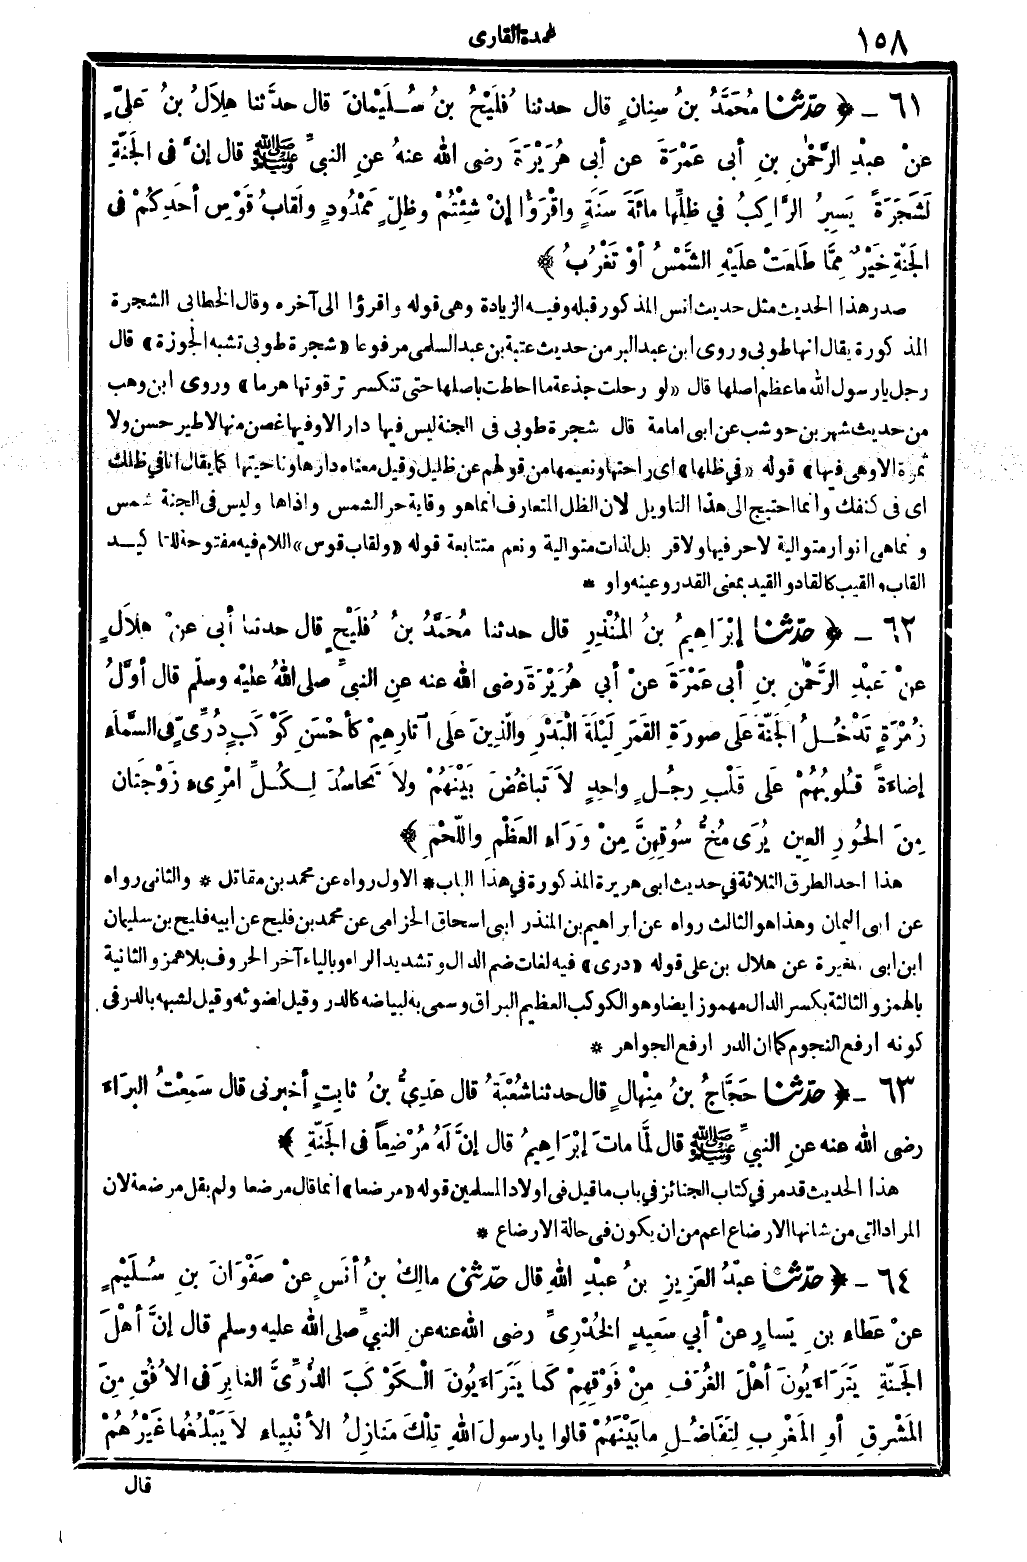 ١٥٨
عمدة القارى
٦١ ـ ﴿ حدّثنا مُحَمَّدُ بنُ سِنانٍ قال حدثنا فُلَيْحُ بنُ سُلَيْمانَ قال حدَّثنا هِلاَلُ بنُ عَلِيٍّ
عنْ عبْدِ الرَّحْمٰنِ بنِ أبى عَمْرَةَ عن أبى هُرَيْرَةَ رضى الله عنهُ عنِ النبىِّ ﷺ قال إنَّ فى الجَنَّةِ
لَشَجَرَةً يَسِيرُ الرَّاكِبُ في ظلِّها مائَةَ سَنَةٍ واقْرَؤُا إنْ شِئْتُمْ وظِلٍّ مَمْدُودٍ ولَقابُ قَوْسِ أحَدِكُمْ فى
الجَنّةِ خَيْرٌ مِمَّا طَلَعَتْ علَيْهِ الشَّمْسُ أوْ تَغْرُبُ ﴾
صدر هذا الحديث مثل حديث أنس المذكور قبله وفيه الزيادة وهى قوله واقرؤا الى آخره وقال الخطابى الشجرة
المذكورة يقال انها طوبى وروى ابن عبد البر من حديث عتبة بن عبد السلمى مرفوعا «شجرة طوبى تشبه الجوزة» قال
رجل يارسول الله ما عظم اصلها قال «لو رحلت جذعة ما احاطت باصلها حتى تنكسر ترقوتها هرما» وروى ابن وهب
من حديث شهر بن حوشب عن ابى امامة قال شجرة طوبى فى الجنة ليس فيها دار الا وفيها غصن منها لا طير حسن ولا
ثمرة الا وهى فيها» قوله «فى ظلها» اى راحتها ونعيمها من قولهم عن ظليل وقيل معناه دارها وناحيتها كما يقال انا في ظلك
اى فى كنفك وانما احتيج الى هذا التاويل لان الظل المتعارف انما هو وقاية حر الشمس واذاها وليس فى الجنة شمس
وانما هى انوار متوالية لاحر فيها ولاقر بل لذات متوالية ونعم متتابعة قوله «ولقاب قوس» اللام فيه مفتوحة للتاكيد
القاب والقيب كالقاد والقيد بمعنى القدر وعينه واو *
٦٢ ـ ﴿ حدّثنا إبْرَاهِيمُ بنُ المُنْذِرِ قال حدثنا مُحَمَّدُ بنُ فُلَيْحٍ قال حدثنا أبى عنْ هِلاَلٍ
عنْ عَبدِ الرَّحْمٰنِ بنِ أبى عَمْرَةَ عنْ أبي هُرَيْرَةَ رضى الله عنه عنِ النبىِّ صلى اللهُ عليْه وسلّم قال أوَّلُ
زُمْرَةٍ تَدْخُلُ الجَنّةَ علَى صورَةِ القَمَرِ لَيْلَةَ الْبَدْرِ والَّذِينَ علَى آثارِهِمْ كأحْسَنِ كَوْكَبٍ دُرِّىٍّ فى السَّمَاءِ
إضاءَةً قُلوبُهُمْ علَى قَلْبِ رجُلٍ واحِدٍ لاَ تَباغُضَ بَيْنَهُمْ ولاَ تَحاسُدَ لِكُلِّ امْرِىءٍ زَوْجَتَانِ
مِنَ الحُورِ العِينِ يُرَى مُخُّ سُوقِهِنَّ مِنْ وَرَاءِ العَظْمِ واللّحْمِ ﴾
هذا احد الطرق الثلاثة في حديث ابى هريرة المذكورة في هذا الباب * الاول رواه عن محمد بن مقاتل * والثانى رواه
عن ابى اليمان وهذا هو الثالث رواه عن ابراهيم بن المنذر ابى اسحاق الحزامى عن محمد بن فليح عن ابيه فليح بن سليمان
ابن ابى المغيرة عن هلال بن على قوله «درى» فيه لغات ضم الدال وتشديد الراء وبالياء آخر الحروف بلا همز والثانية
بالهمز والثالثة بكسر الدال مهموز ايضا وهو الكوكب العظيم البراق وسمى به لبياضه كالدر وقيل لضوئه وقيل لشبهه بالدر فى
كونه ارفع النجوم كما ان الدر ارفع الجواهر *
٦٣ ـ ﴿ حدّثنا حَجَّاجُ بنُ مِنْهالٍ قال حدثنا شُعْبَةُ قال عَدِيُّ بنُ ثابِتٍ أخبرنى قال سَمِعْتُ البرَاءَ
رضى الله عنه عنِ النبيِّ ﷺ قال لَمَّا ماتَ إبْرَاهِيمُ قال إنَّ لَهُ مُرْضِعاً فى الجَنّةِ ﴾
هذا الحديث قد مر في كتاب الجنائز في باب ما قيل فى اولاد المسلمين قوله «مرضعا» انما قال مرضعا ولم يقل مرضعة لان
المراد التى من شانها الارضاع اعم من ان يكون فى حالة الارضاع *
٦٤ ـ ﴿ حدّثنا عبْدُ العَزِيزِ بنُ عبْدِ اللهِ قال حدّثنى مالِكُ بنُ أنَسٍ عنْ صَفْوَانَ بنِ سُلَيْمٍ
عنْ عَطاءِ بنِ يَسارٍ عنْ أبي سَعِيدٍ الخُدْرِىِّ رضى الله عنه عنِ النبيِّ صلى الله عليه وسلم قال إنَّ أهْلَ
الجَنّةِ يَتَرَاءَيُونَ أهْلَ الغُرَفِ مِنْ فَوْقِهِمْ كَما يَتَرَاءَيُونَ الْكَوْكَبَ الدُّرِّىَّ الغابِرَ فى الأفُقِ مِنَ
المَشْرِقِ أوِ المَغْرِبِ لِتَفَاضُلِ ما بَيْنَهُمْ قالوا يارسولَ اللهِ تِلْكَ مَنازِلُ الأنْبِياءِ لاَ يَبْلُغُها غَيْرُهُمْ
قال